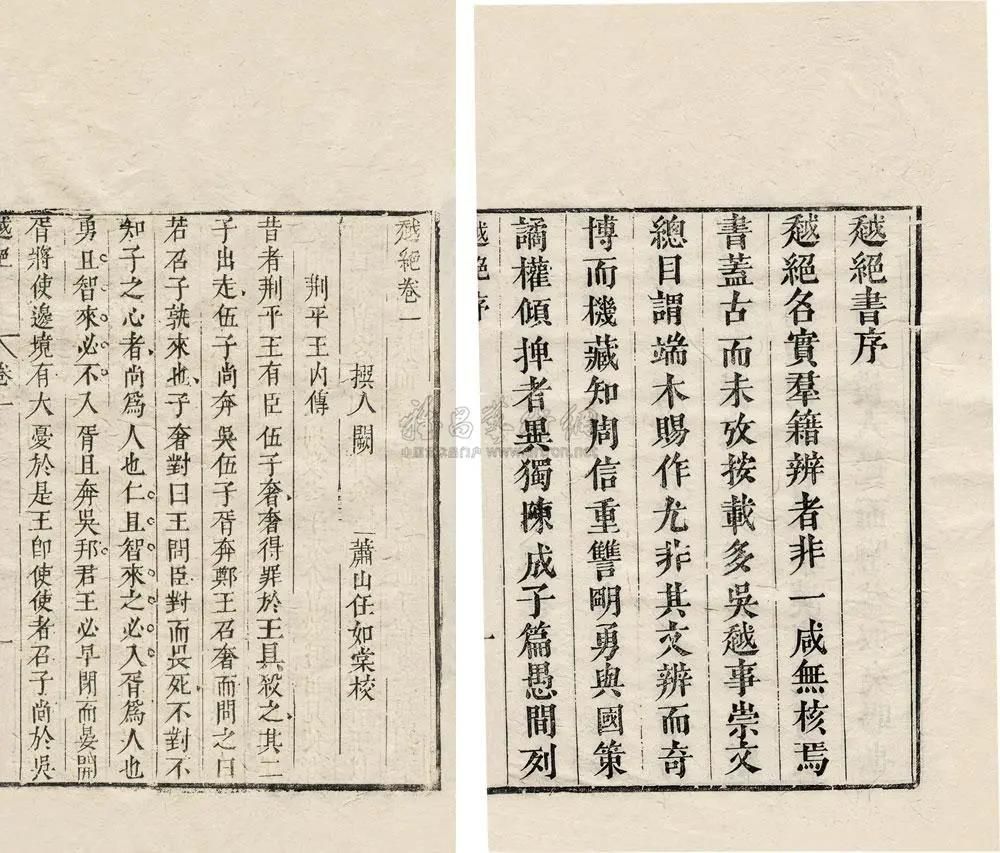 越絕書序
越絕各實羣籍辨者非一咸無核焉
書蓋古而未攷按載多吳越事崇文
總目謂端木賜作尤非其文辨而奇
博而機藏知周信重讐明勇與國策
譎權傾捭者異獨陳成子篇愚間列
越絕序
一
越絕卷一
撰人闕 蕭山任如棠校
荆平王內傳
昔者荆平王有臣伍子奢奢得罪於王且殺之其二
子出走伍子尚奔吳伍子胥奔鄭王召奢而問之曰
若召子孰來也子奢對曰王問臣對而畏死不對不
知子之心者尚爲人也仁且智來之必入胥爲人也
勇且智來必不入胥且奔吳邦君王必早閉而晏開
胥將使邊境有大憂於是王卽使使者召子尚於吳
越絕
卷一
一